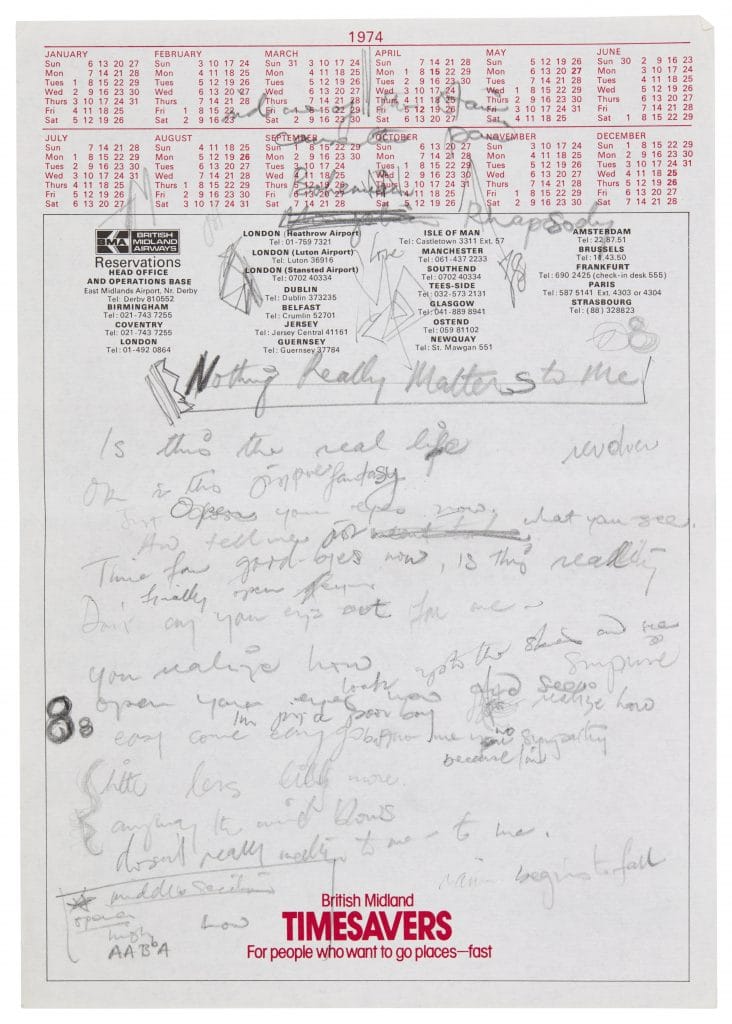 1974
JANUARY FEBRUARY MARCH APRIL MAY JUNE
Sun 6 13 20 27 3 10 17 24 Sun 31 3 10 17 24 7 14 21 28 5 12 19 26 Sun 30 2 9 16 23
Mon 7 14 21 28 4 11 18 25 Mon 4 11 18 25 1 8 15 22 29 6 13 20 27 Mon 3 10 17 24
Tues 1 8 15 22 29 5 12 19 26 Tues 5 12 19 26 2 9 16 23 30 7 14 21 28 Tues 4 11 18 25
Wed 2 9 16 23 30 6 13 20 27 Wed 6 13 20 27 3 10 17 24 1 8 15 22 29 Wed 5 12 19 26
Thurs 3 10 17 24 31 7 14 21 28 Thurs 7 14 21 28 4 11 18 25 2 9 16 23 30 Thurs 6 13 20 27
Fri 4 11 18 25 1 8 15 22 Fri 1 8 15 22 29 5 12 19 26 3 10 17 24 31 Fri 7 14 21 28
Sat 5 12 19 26 2 9 16 23 Sat 2 9 16 23 30 6 13 20 27 4 11 18 25 Sat 1 8 15 22 29
JULY AUGUST SEPTEMBER OCTOBER NOVEMBER DECEMBER
Sun 7 14 21 28 4 11 18 25 Sun 1 8 15 22 29 6 13 20 27 3 10 17 24 Sun 1 8 15 22 29
Mon 1 8 15 22 29 5 12 19 26 Mon 2 9 16 23 30 7 14 21 28 4 11 18 25 Mon 2 9 16 23 30
Tues 2 9 16 23 30 6 13 20 27 Tues 3 10 17 24 1 8 15 22 29 5 12 19 26 Tues 3 10 17 24 31
Wed 3 10 17 24 31 7 14 21 28 Wed 4 11 18 25 2 9 16 23 30 6 13 20 27 Wed 4 11 18 25
Thurs 4 11 18 25 1 8 15 22 29 Thurs 5 12 19 26 3 10 17 24 31 7 14 21 28 Thurs 5 12 19 26
Fri 5 12 19 26 2 9 16 23 30 Fri 6 13 20 27 4 11 18 25 1 8 15 22 29 Fri 6 13 20 27
Sat 6 13 20 27 3 10 17 24 31 Sat 7 14 21 28 5 12 19 26 2 9 16 23 30 Sat 7 14 21 28
Bohemian
Rhapsody
BMA BRITISH MIDLAND AIRWAYS
Reservations
HEAD OFFICE
AND OPERATIONS BASE
East Midlands Airport, Nr. Derby
Tel: Derby 810552
BIRMINGHAM
Tel: 021-743 7255
COVENTRY
Tel: 021-743 7255
LONDON
Tel: 01-492 0864
LONDON (Heathrow Airport)
Tel: 01-759 7321
LONDON (Luton Airport)
Tel: Luton 36916
LONDON (Stansted Airport)
Tel: 0702 40334
DUBLIN
Tel: Dublin 373235
BELFAST
Tel: Crumlin 52701
JERSEY
Tel: Jersey Central 41161
GUERNSEY
Tel: Guernsey 37784
ISLE OF MAN
Tel: Castletown 3311 Ext. 57
MANCHESTER
Tel: 061-437 2233
SOUTHEND
Tel: 0702 40334
TEES-SIDE
Tel: 032-573 2131
GLASGOW
Tel: 041-889 8941
OSTEND
Tel: 059 81102
NEWQUAY
Tel: St. Mawgan 551
AMSTERDAM
Tel: 22.87.51
BRUSSELS
Tel: 11.43.50
FRANKFURT
Tel: 690 2425 (check-in desk 555)
PARIS
Tel: 587 5141 Ext. 4303 or 4304
STRASBOURG
Tel: (88) 328823
Nothing Really Matters to me
Is this the real life
Or is this just fantasy
Just Open your eyes now. what you see.
And tell me
Time for good-byes now, is this reality
finally open
Don't cry your eyes out for me
you realize how look up to the skies and see
open your eyes now and see surprise
realize how
I'm just a poor boy
easy come easy go no sympathy
because I'm
little less little more
anyway the wind blows
doesn't really matter to me - to me.
begins to fall
middle section
opera
how
high
AABA
8 8
British Midland
TIMESAVERS
For people who want to go places—fast